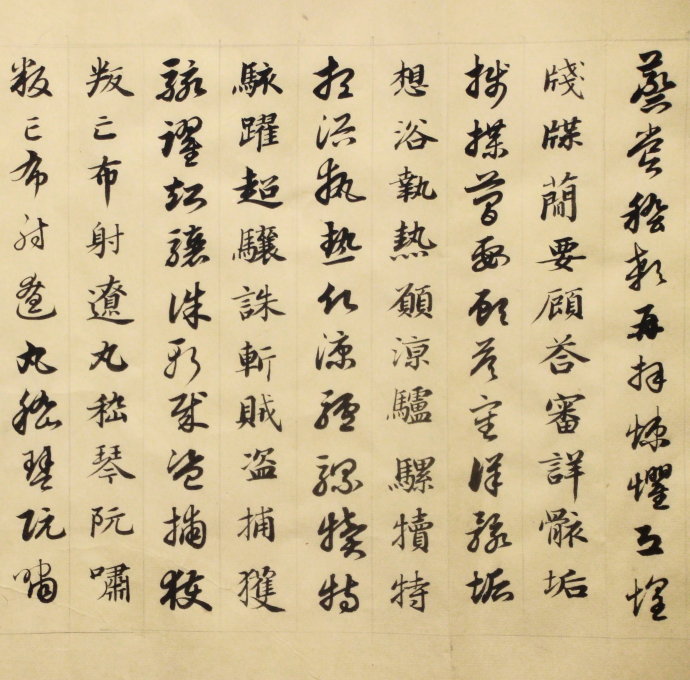 蒸嘗稽顙再拜悚懼恐惶
牋牒蕳要顧荅審詳骸垢
牋牒蕳要顧荅審詳骸垢
想浴執熱願涼驢騾犢特
想浴執熱願涼驢騾犢特
駭躍超驤誅斬賊盗捕獲
駭躍超驤誅斬賊盗捕獲
叛亡布射遼丸嵇琴阮嘯
叛亡布射遼丸嵇琴阮嘯